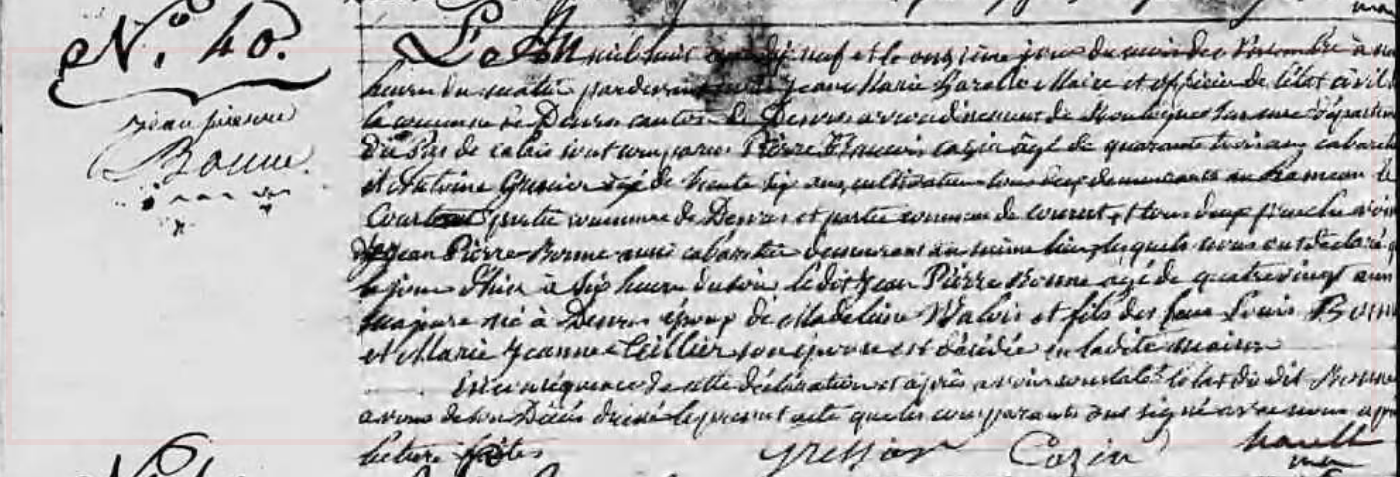 N.º 40.
Jean pierre
Bonne.
L'an mil huit cent dix neuf et le onzième jour du mois de Novembre à
heures du matin pardevant nous Jean Marie harelle Maire et officier de l'état civil
la commune de Desvres canton de Desvres arrondissement de Boulogne sur mer Départem
du Pas de calais sont comparus Pierre François Cazin âgé de quarante trois ans cabare
et Antoine âgé de trente six ans cultivateur tous deux demeurants au hameau
Courtaut partie commune de Desvres et partie commune de courset, et tous deux proche
Jean Pierre Bonne aussi cabaretier demeurant au même lieu lesquels nous ont déclaré
le jour d'hier à six heures du soir ledit Jean Pierre Bonne âgé de quatrevingt ans
né à Desvres époux de Madeleine Walois et fils des feus Louis Bonn
et Marie Jeanne Tellier son épouse est décédé en ladite maison
En conséquence de cette déclaration et après avoir constaté le décès dudit Bonne
avons de son Décès dressé le présent acte que les comparants ont signé avec nous
lecture faite
Cazin harelle